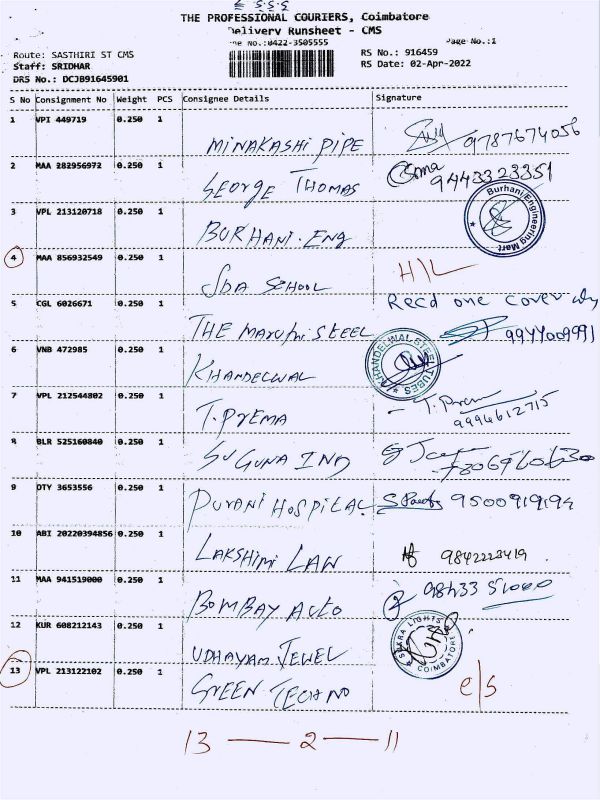 THE PROFESSIONAL COURIERS, Coimbatore
Delivery Runsheet - CMS
No.:0422-3505555
Page No.:1
Route: SASTHIRI ST CMS
RS No.: 916459
Staff: SRIDHAR
RS Date: 02-Apr-2022
DRS No.: DCJB91645901
S No Consignment No Weight PCS Consignee Details Signature
1 VPI 449719 0.250 1
MINAKASHI PIPE 9787674056
2 MAA 282956972 0.250 1
GEORGE THOMAS 9443323351
3 VPL 213120718 0.250 1
BURHANI. ENG Burhani Engineering Mart
4 MAA 856932549 0.250 1
SDA SCHOOL H/L
5 CGL 6026671 0.250 1 Recd one cover
THE MARUTHI STEEL 9944009991
6 VNB 472985 0.250 1
KHANDELWAL KHANDELWAL STEEL TUBES
7 VPL 212544802 0.250 1
T. PREMA T. Prema 9994612715
8 BLR 525160840 0.250 1
SUGUNA IND
9 OTY 3653556 0.250 1
PURANI HOSPITAL 9500919194
10 ABI 20220394856 0.250 1
LAKSHIMI LAW 9842223419
11 MAA 941519000 0.250 1
BOMBAY AUTO 98433 51000
12 KUR 608212143 0.250 1
UDHAYAM JEWEL LIGHTS COIMBATORE
13 VPL 213122102 0.250 1
GREEN TECHNO e/s
13 — 2 — 11